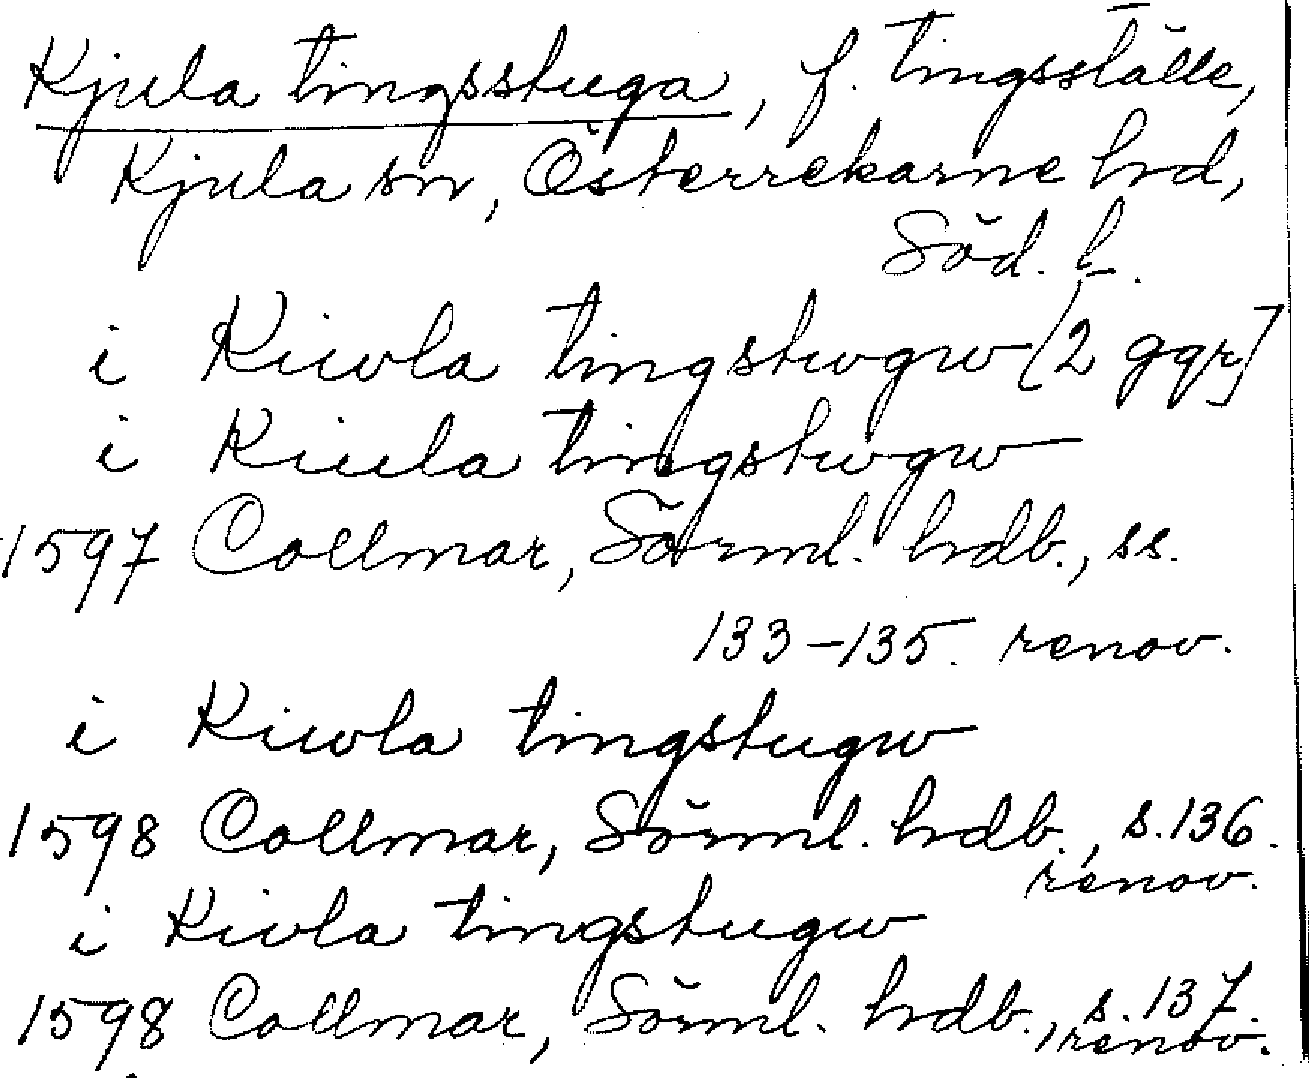 Kjula tingsstuga, f. tingsställe,
Kjula sn, Österrekarne hd,
Söd. l.
i Kiwla tingstwgw [2 ggr]
i Kiula tingstwgw
1597 Collmar, Sörml. hdb., ss.
133-135. renov.
i Kiwla tingstugw
1598 Collmar, Sörml. hdb., s. 136.
renov.
i Kiwla tingstugw
1598 Collmar, Sörml. hdb., s. 137.
renov.